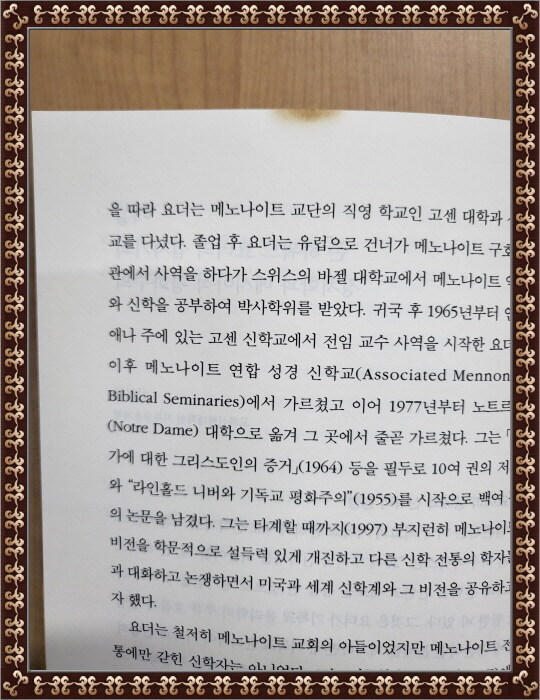 을 따라 요더는 메노나이트 교단의 직영 학교인 고센 대학과
교를 다녔다. 졸업 후 요더는 유럽으로 건너가 메노나이트 구호
관에서 사역을 하다가 스위스의 바젤 대학교에서 메노나이트
와 신학을 공부하여 박사학위를 받았다. 귀국 후 1965년부터
애나 주에 있는 고센 신학교에서 전임 교수 사역을 시작한 요더
이후 메노나이트 연합 성경 신학교(Associated Mennon
Biblical Seminaries)에서 가르쳤고 이어 1977년부터 노트르
(Notre Dame) 대학으로 옮겨 그 곳에서 줄곧 가르쳤다. 그는 「
가에 대한 그리스도인의 증거」(1964) 등을 필두로 10여 권의 저
와 “라인홀드 니버와 기독교 평화주의”(1955)를 시작으로 백여
의 논문을 남겼다. 그는 타계할 때까지(1997) 부지런히 메노나이
비전을 학문적으로 설득력 있게 개진하고 다른 신학 전통의 학자
과 대화하고 논쟁하면서 미국과 세계 신학계와 그 비전을 공유하고
자 했다.
요더는 철저히 메노나이트 교회의 아들이었지만 메노나이트 전
통에만 갇힌 신학자는 아니었다.